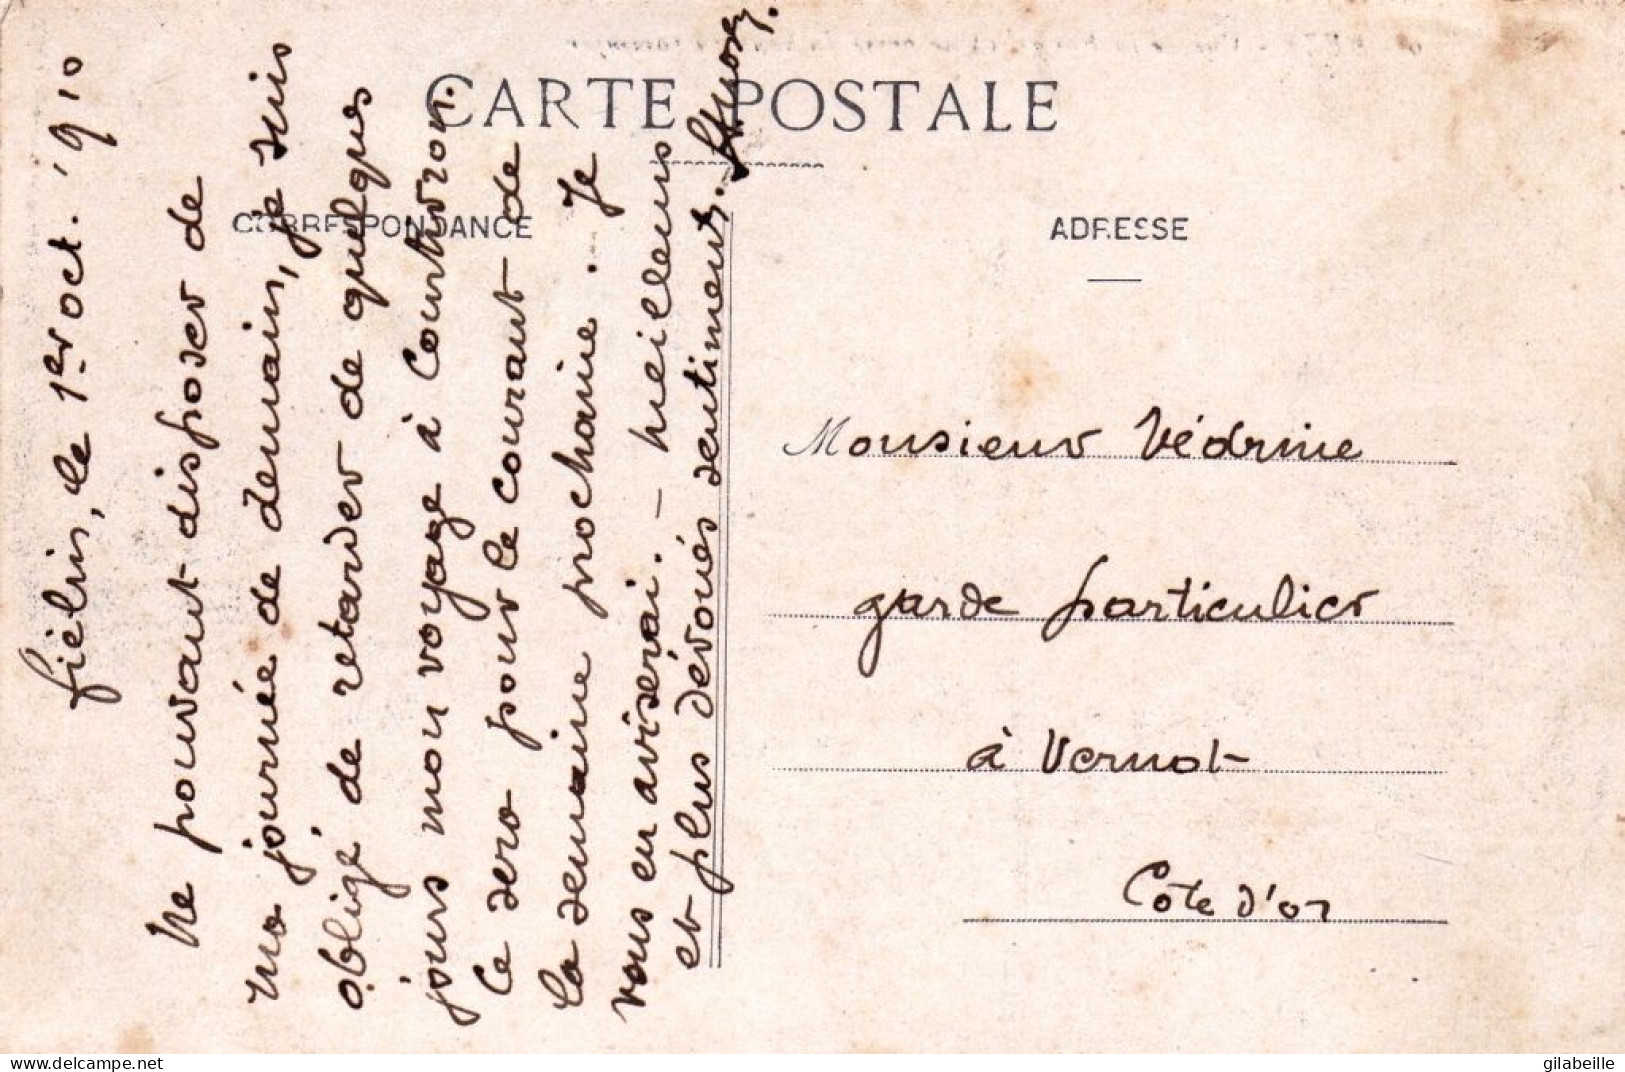 CARTE POSTALE
CORRESPONDANCE
ADRESSE
le 1er oct. 1910
Ne pouvant disposer de
ma journée de demain, je suis
obligé de retarder de quelques
jours mon voyage à Courtivron.
Ce sera pour le courant de
la semaine prochaine. Je
vous en aviserai. - meilleurs
et plus dévoués sentiments.
Monsieur Védrine
garde particulier
à Vernot
Côte d'or
delcampe.net
gilabeille